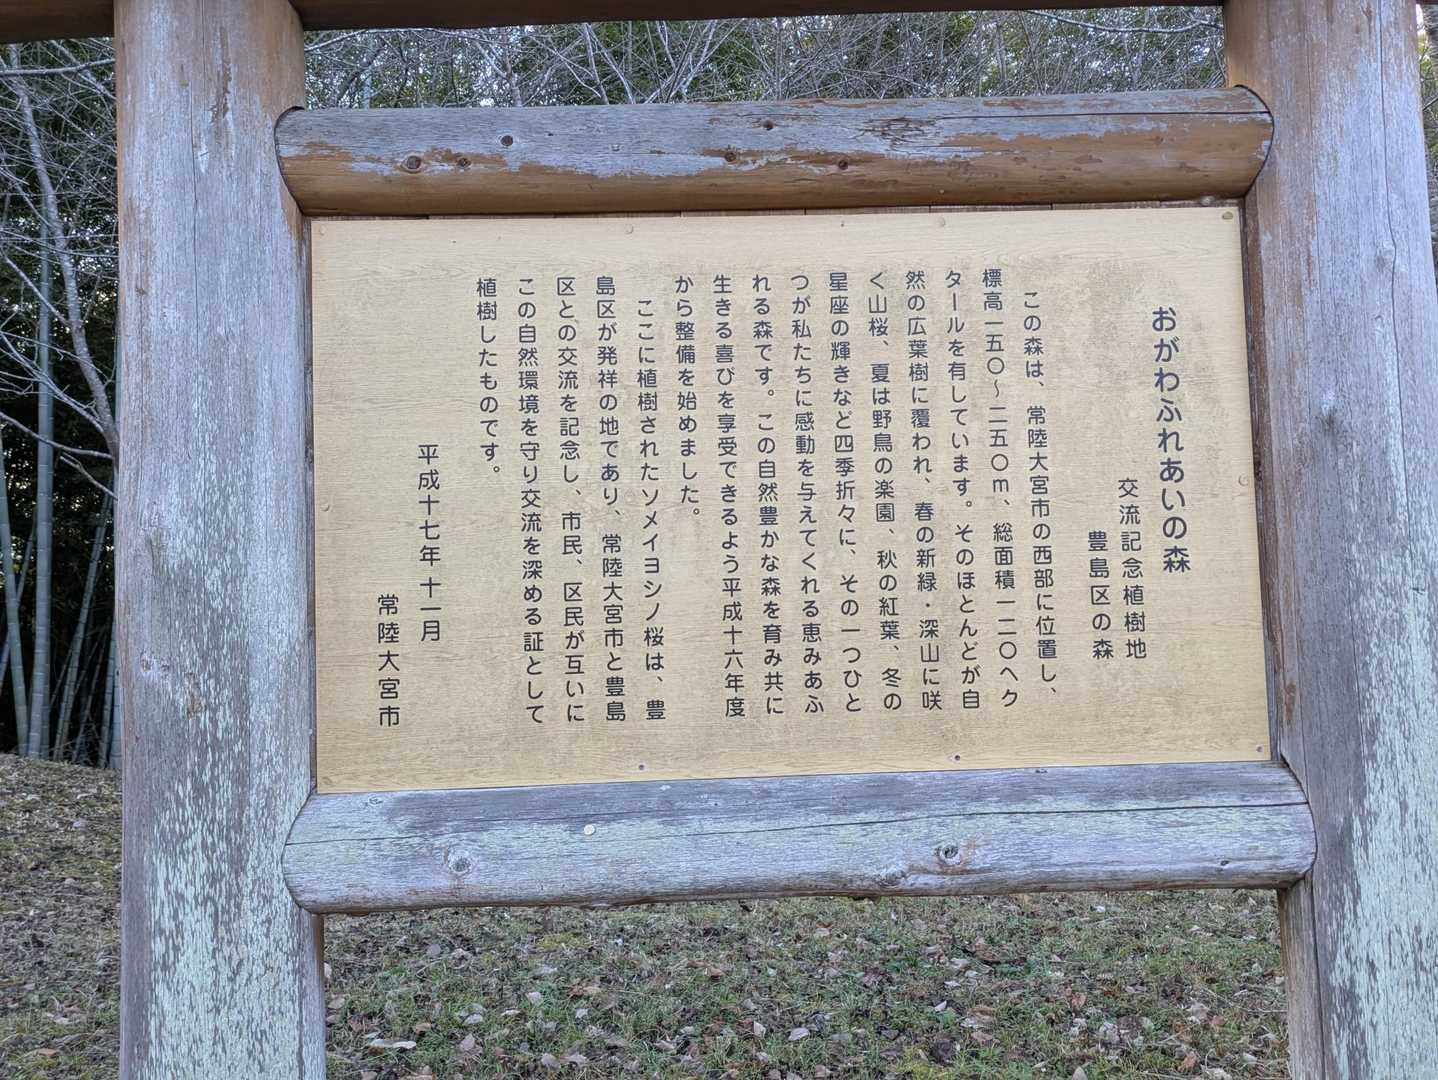 おがわふれあいの森
交流記念植樹地
豊島区の森
この森は、常陸大宮市の西部に位置し、
標高一五〇～二五〇ｍ、総面積一二〇ヘク
タールを有しています。そのほとんどが自
然の広葉樹に覆われ、春の新緑・深山に咲
く山桜、夏は野鳥の楽園、秋の紅葉、冬の
星座の輝きなど四季折々に、その一つひと
つが私たちに感動を与えてくれる恵みあふ
れる森です。この自然豊かな森を育み共に
生きる喜びを享受できるよう平成十六年度
から整備を始めました。
ここに植樹されたソメイヨシノ桜は、豊
島区が発祥の地であり、常陸大宮市と豊島
区との交流を記念し、市民、区民が互いに
この自然環境を守り交流を深める証として
植樹したものです。
平成十七年十一月
常陸大宮市